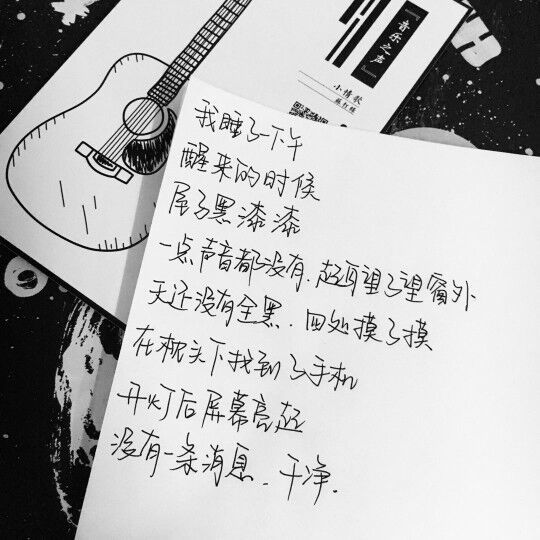 『音乐之声』
小情歌
我睡了一下午
醒来的时候
屋子黑漆漆
一点声音都没有.起身望了望窗外
天还没有全黑.四处摸了摸
在枕头下找到了手机
开灯后屏幕亮起
没有一条消息.干净.